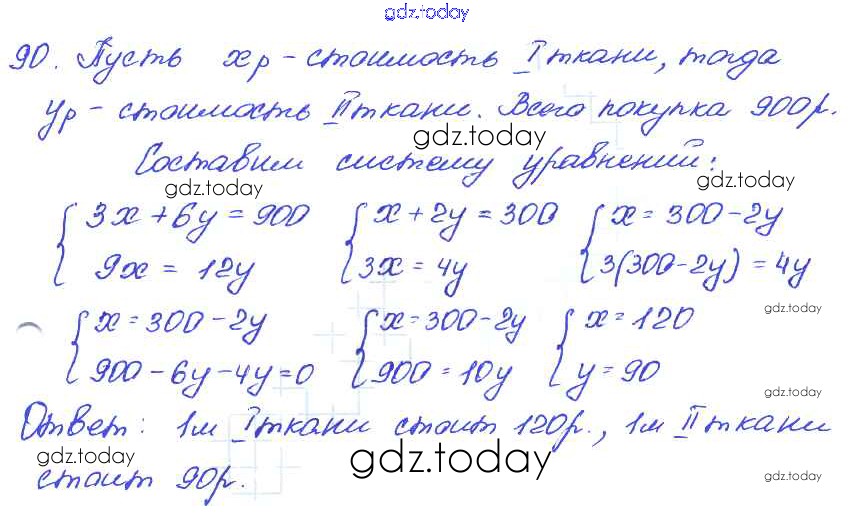 gdz.today
90. Пусть xр - стоимость I ткани, тогда
yр - стоимость II ткани. Всего покупка 900р.
gdz.today
Составим систему уравнений:
gdz.today gdz.today
{ 3x + 6y = 900 { x + 2y = 300 { x = 300 - 2y
9x = 12y 3x = 4y 3(300 - 2y) = 4y
gdz.today
{ x = 300 - 2y { x = 300 - 2y { x = 120
900 - 6y - 4y = 0 900 = 10y y = 90
gdz.today
Ответ: 1м I ткани стоит 120р., 1м II ткани
gdz.today gdz.today gdz.today
стоит 90р.